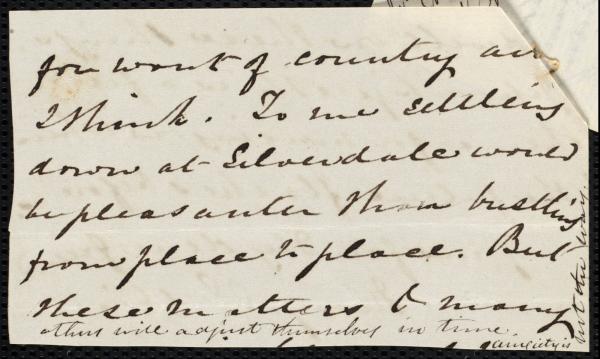 for want of country air
I think. To me settling
down at Silverdale would
be pleasanter than bustling
from place to place. But
these matters & many
others will adjust themselves in time.
anxiety is
but the way